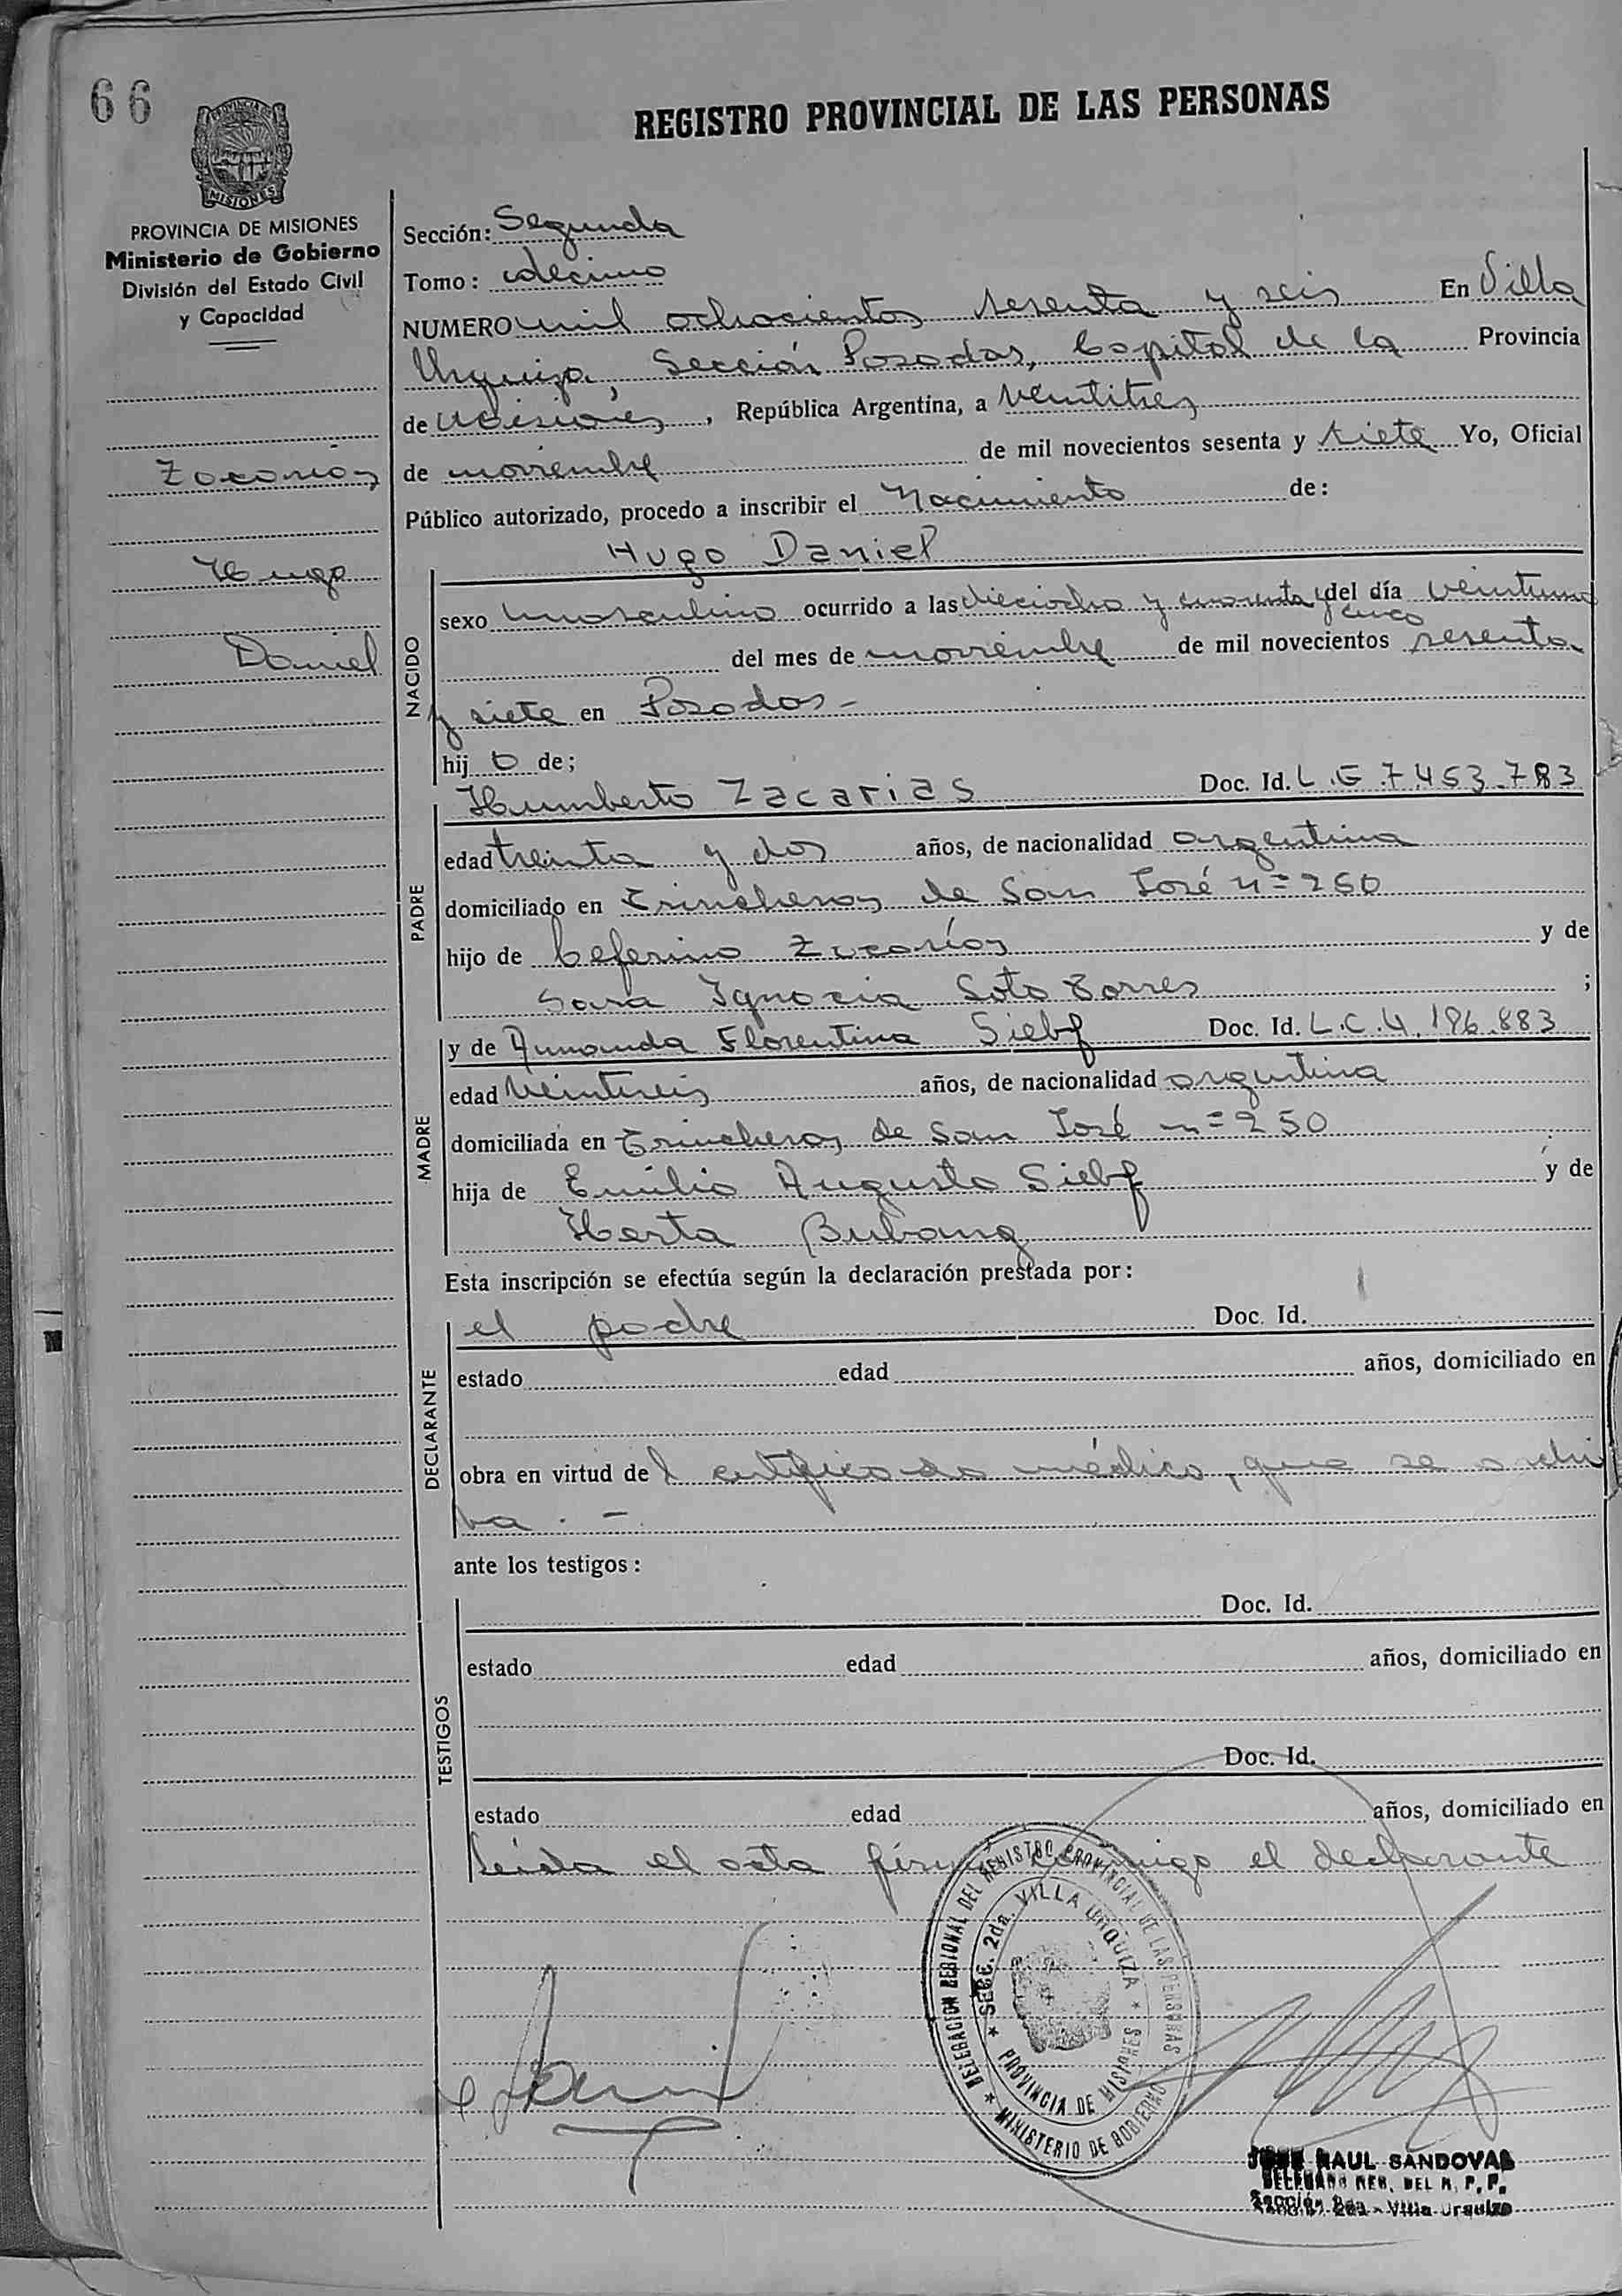 66
REGISTRO PROVINCIAL DE LAS PERSONAS
PROVINCIA DE MISIONES
PROVINCIA DE MISIONES
Ministerio de Gobierno
División del Estado Civil
y Capacidad
Zacarías
Hugo
Daniel
Sección: Segunda
Tomo: décimo
NUMERO mil ochocientos sesenta y seis En Villa
Urquiza, Sección Posadas, Capital de la Provincia
de Misiones, República Argentina, a veintitres
de noviembre de mil novecientos sesenta y siete Yo, Oficial
Público autorizado, procedo a inscribir el Nacimiento de:
Hugo Daniel
NACIDO
sexo masculino ocurrido a las dieciocho y cuarenta y del día veintiuno
cinco
del mes de noviembre de mil novecientos sesenta
y siete en Posadas-
hijo de;
PADRE
Humberto Zacarias Doc. Id. L.E 7.453.783
edad treinta y dos años, de nacionalidad argentina
domiciliado en Trincheras de San José nº 250
hijo de Ceferino Zacarías y de
Sara Ignacia Soto Torres ;
MADRE
y de Amanda Florentina Doc. Id. L.C.4.196.883
edad veintiseis años, de nacionalidad argentina
domiciliada en Trincheras de San José nº 250
hija de Emilio Augusto y de
Herta
Esta inscripción se efectúa según la declaración prestada por:
DECLARANTE
el padre Doc. Id.
estado edad años, domiciliado en
obra en virtud del certificado médico, que se archi
va. -
ante los testigos:
TESTIGOS
Doc. Id.
estado edad años, domiciliado en
Doc. Id.
estado edad años, domiciliado en
Leída el acta firma conmigo el declarante
DELEGACION REGIONAL DEL REGISTRO PROVINCIAL DE LAS PERSONAS
* SECC. 2da. VILLA URQUIZA *
PROVINCIA DE MISIONES
* MINISTERIO DE GOBIERNO
RAUL SANDOVAL
DELEGADO REG. DEL R. P. P.
Sección 2da - Villa Urquiza